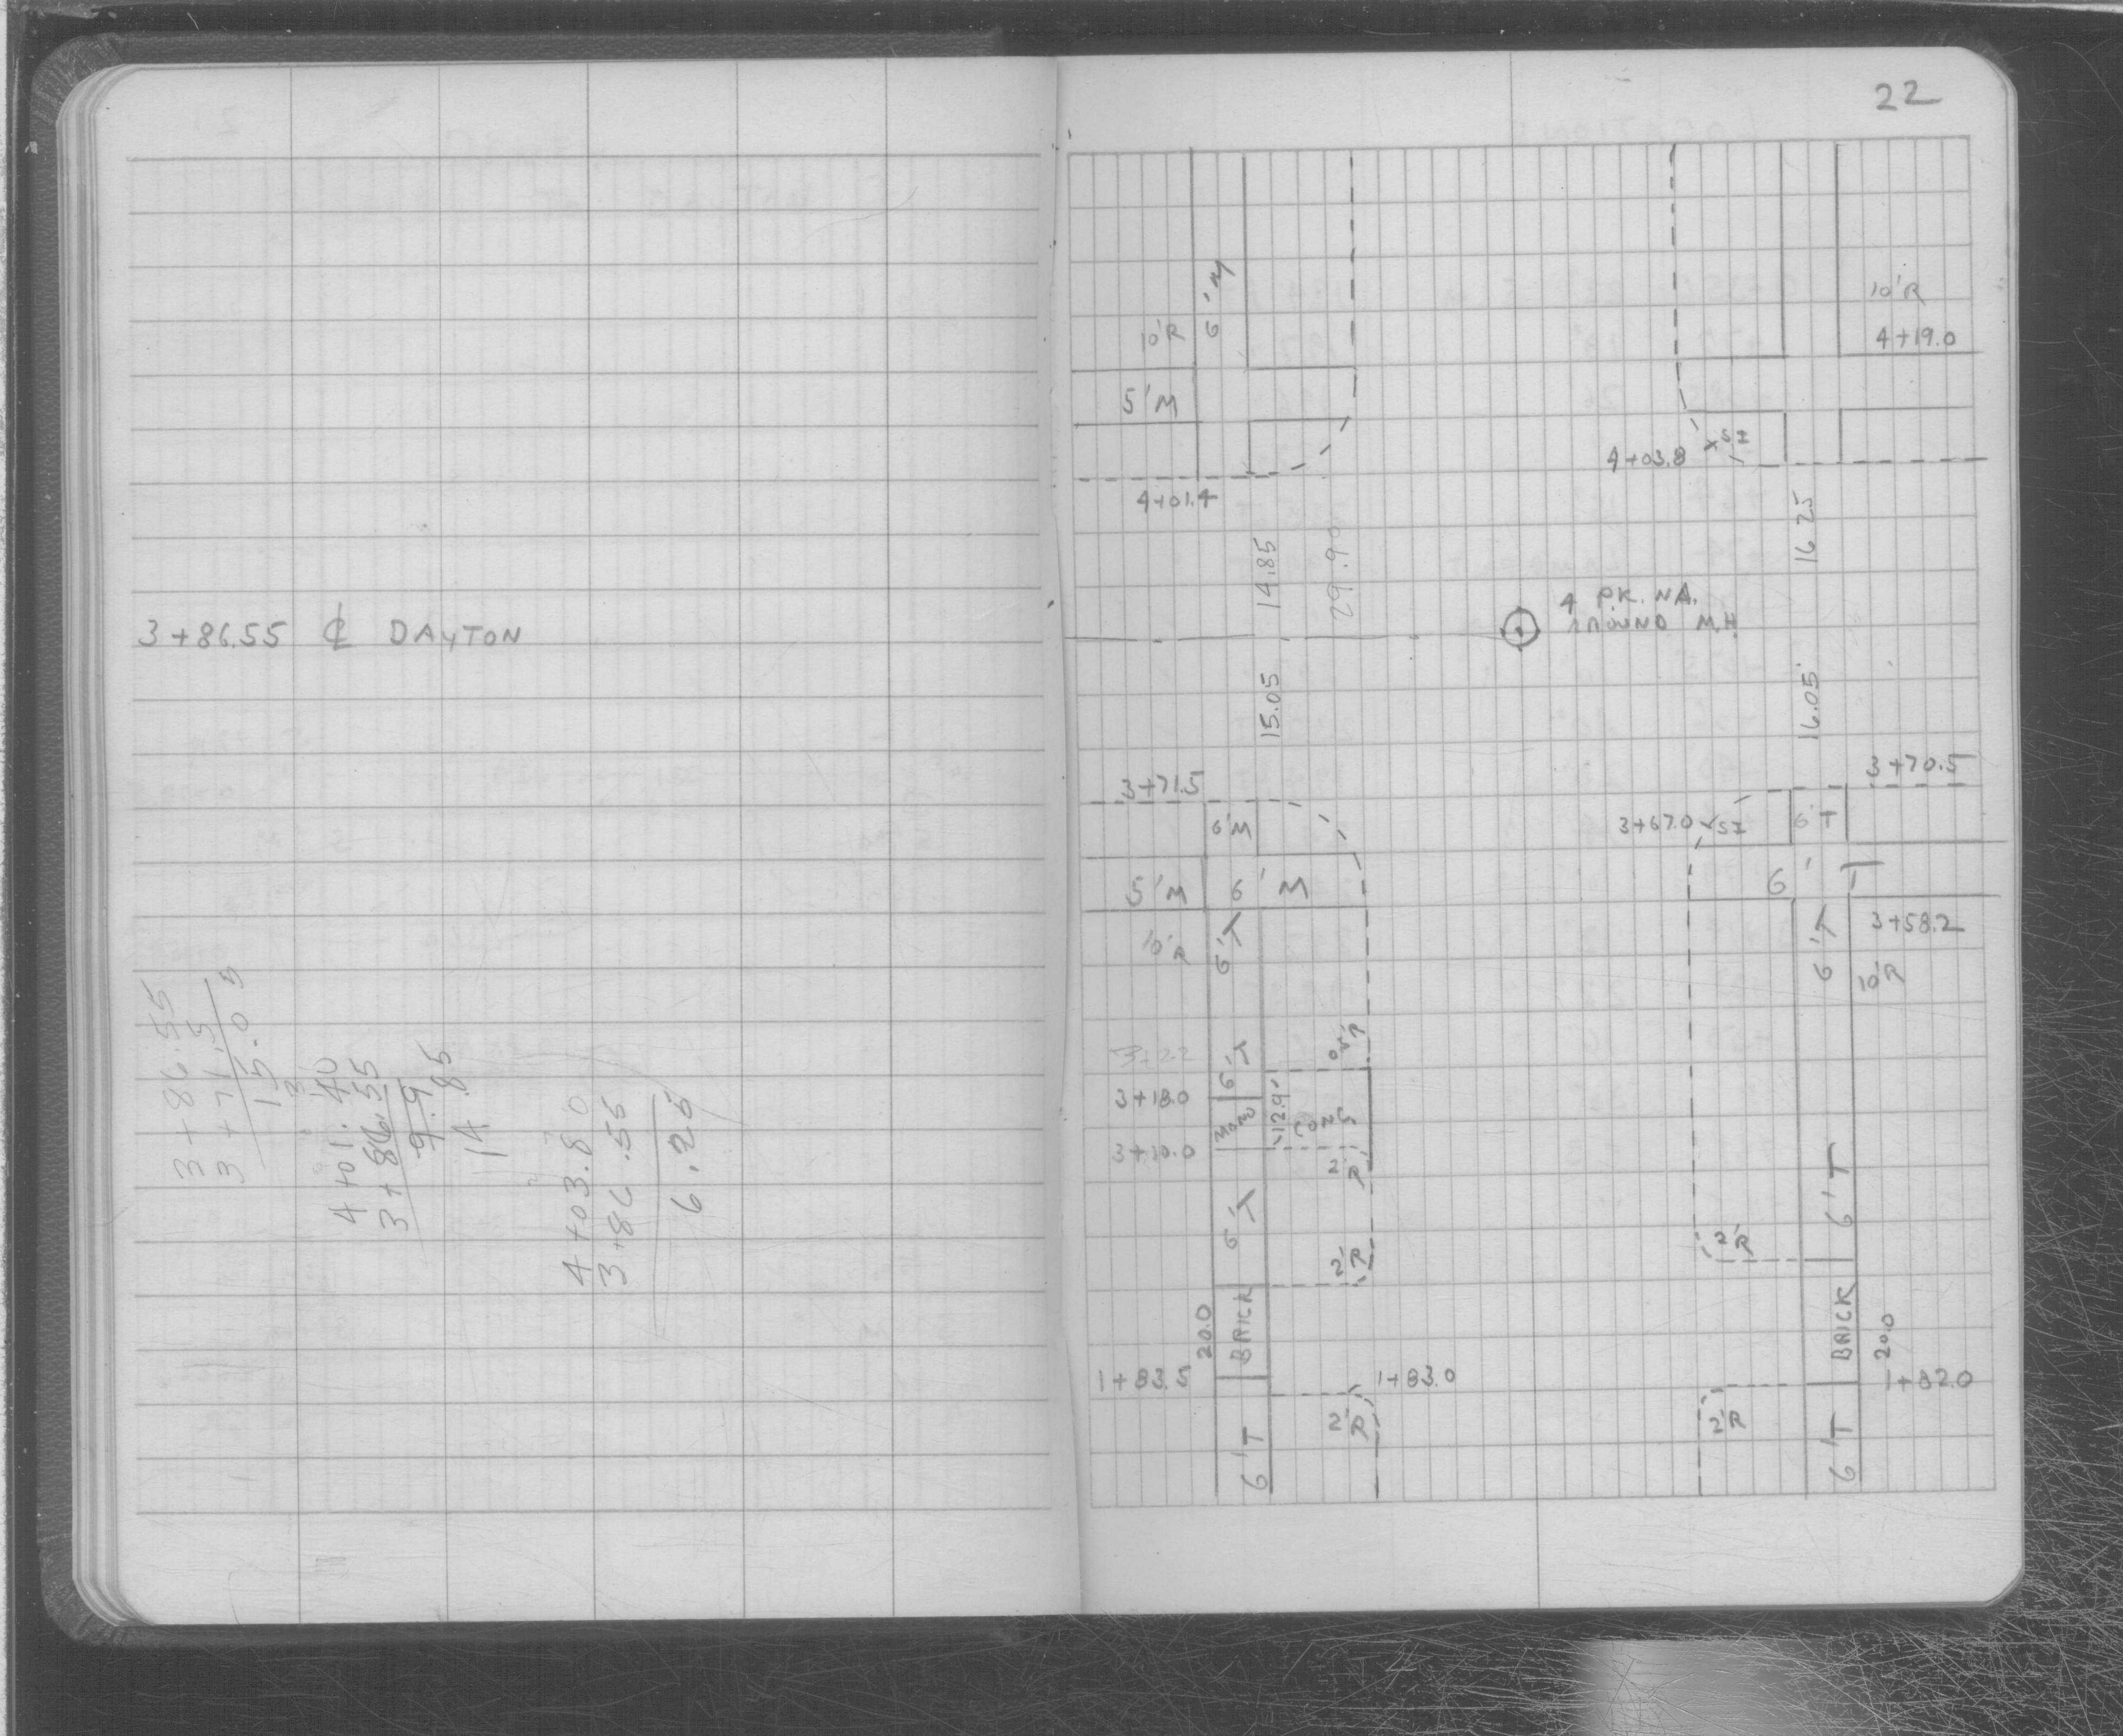 3+86.55 ₵ DAYTON
3+86.55
3+71.5
15.05
4+01.40
3+86.55
9.9
14.85
4+03.80
3+86.55
6.25
22
6'M
10'R
10'R
4+19.0
5'M
SI
4+03.8
4+01.4
14.85
29.90
16.25
4 PK. NA.
AROUND M.H.
15.05
16.05
3+71.5
3+70.5
6'M
3+67.0 SI
6'T
5'M
6'M
6'T
10'R
6'T
6'T
3+58.2
10'R
6'T
3+18.0
MONO
12.9'
CONC
3+10.0
2'R
6'T
6'T
2'R
2'R
20.0
BRICK
BRICK
20.0
1+83.5
1+83.0
1+82.0
6'T
2'R
2'R
6'T